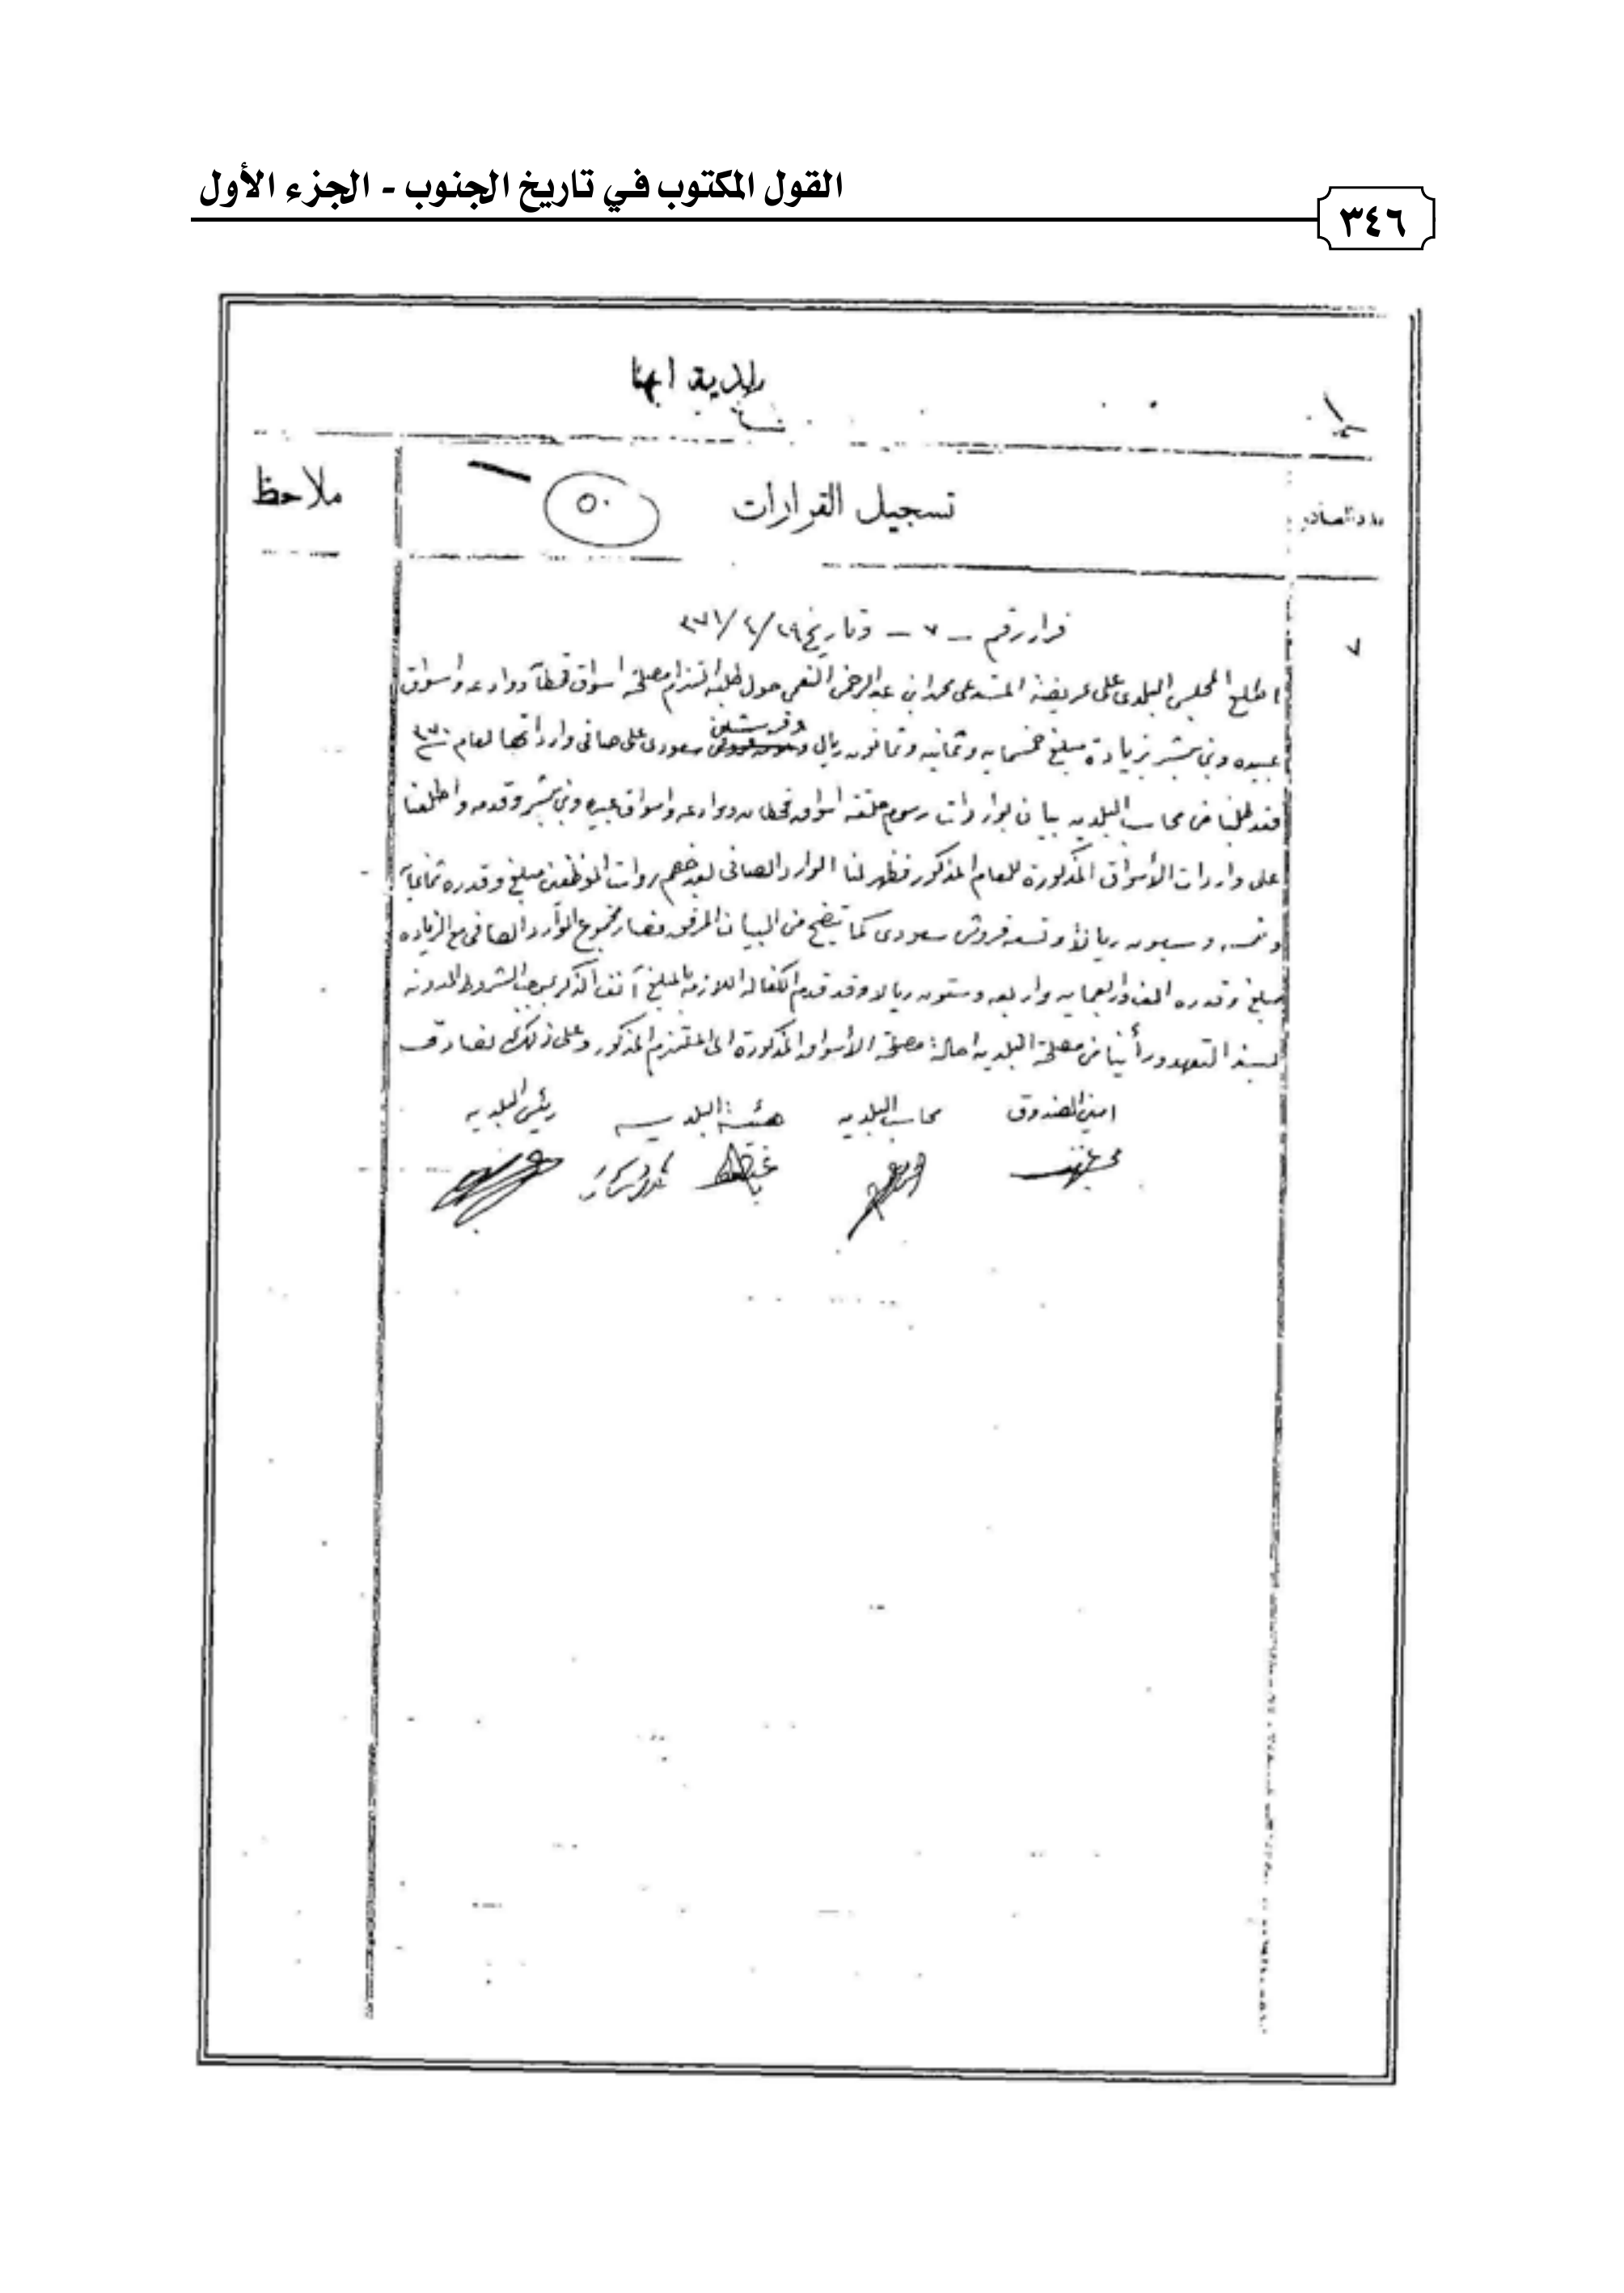 القول المكتوب في تاريخ الجنوب - الجزء الأول
٣٤٦
بلدية ابها
ملاحظ
تسجيل القرارات
٥٠
عدد الصادر
قرار رقم – ٧ – وتاريخ ٢٩/٤/٣٧١
٧
اطلع المجلس البلدي على عريضة المستدعي محمد ابن عبدالرحمن النعمي حول طلبه التزام مصلحة اسواق قحطان ووادعه واسواق
عبيده وبني بشر بزيادة مبلغ خمسمايه وثمانيه وثمانون ريال وقرشين سعودي على صافي وارداتها لعام ٣٧٠
فقد طلبنا من محاسب البلديه بيان بواردات رسوم ملتقه اسواق قحطان ووادعه واسواق عبيده وبني بشر وقدمه واطلعنا
على واردات الأسواق المذكورة للعام المذكور فظهر لنا الوارد الصافي بعد خصم رواتب الموظفين مبلغ وقدره ثمانمايه
وخمسه وسبعون ريالاً وتسعه قروش سعودي كما يتضح من البيان المرفق فصار مجموع الوارد الصافي مع الزياده
مبلغ وقدره الف واربعمايه واربعه وستون ريالا وقد قدم الكفاله اللازمة بالمبلغ آنف الذكر بموجب الشروط المدونه
بسند التعهد ورأينا من مصلحة البلديه احالة مصلحة الأسواق المذكورة الى الملتزم المذكور وعلى ذلك نصادق
امين الصندوق محاسب البلديه هيئة البلديه رئيس البلديه